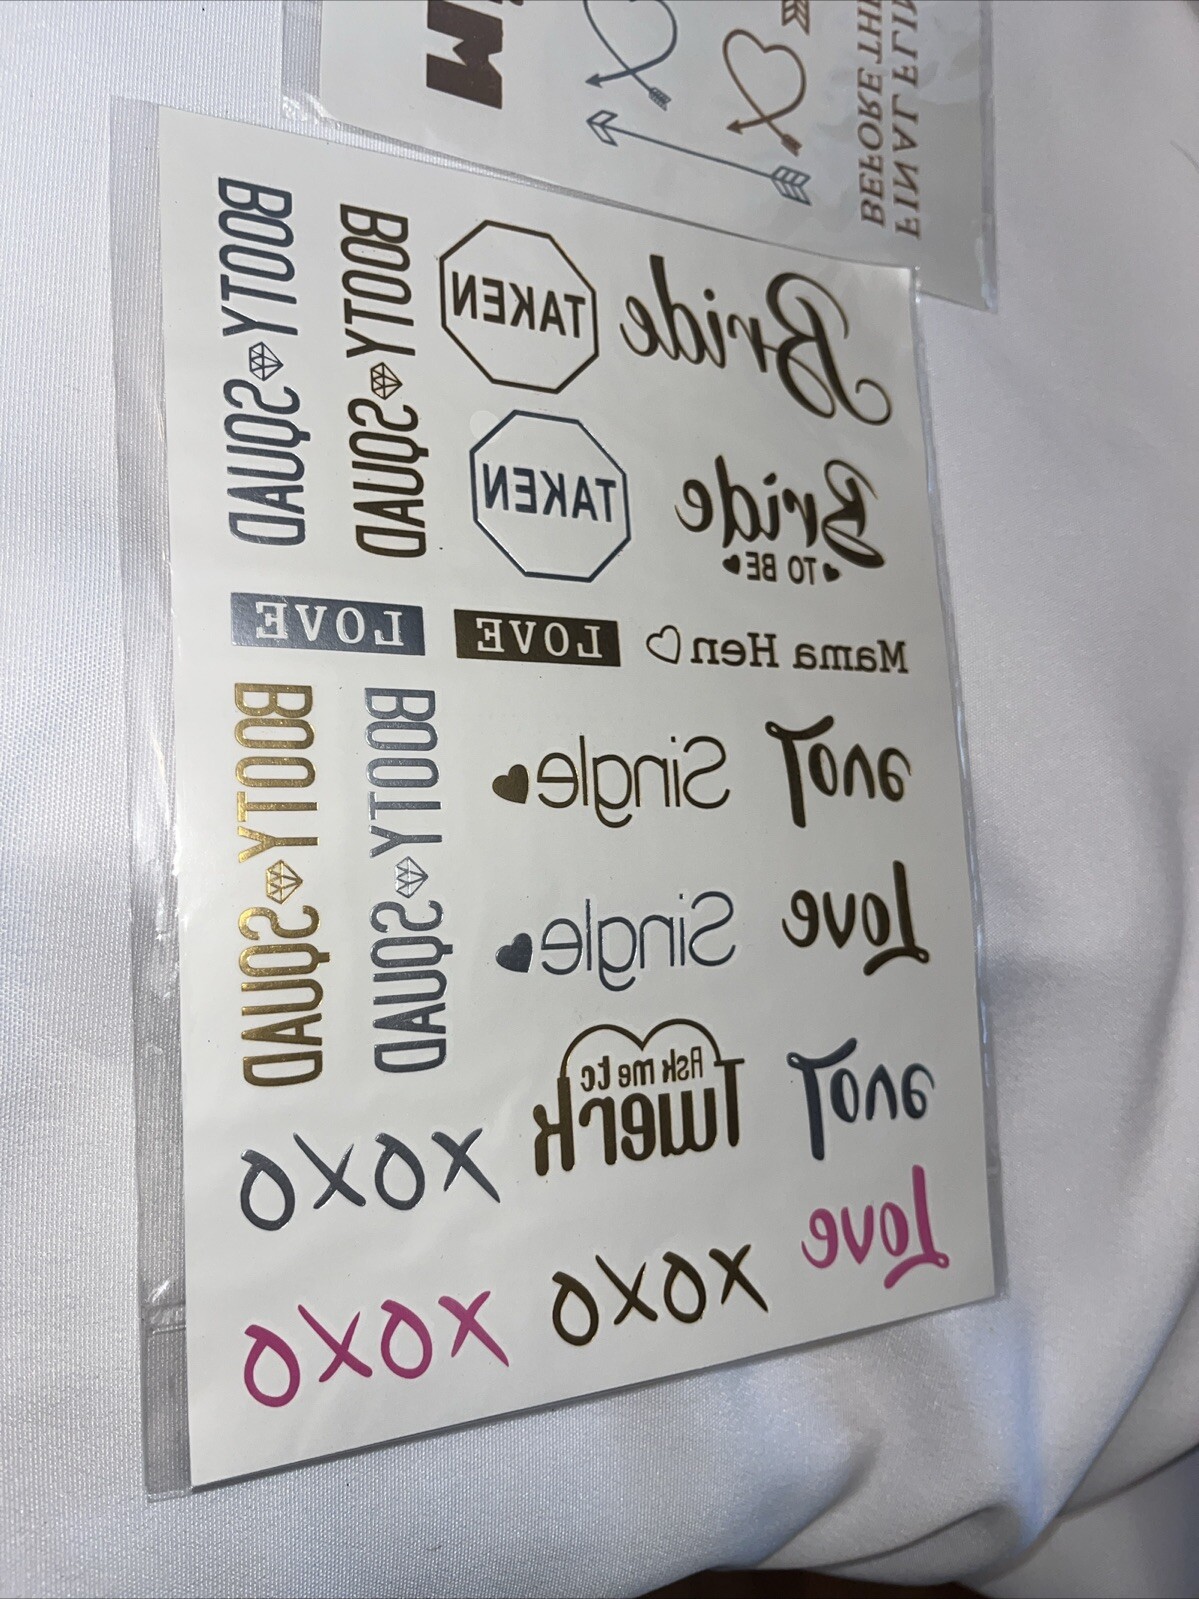 iM
BEFORE THE
FINAL FLIN
BOOTY SQUAD
BOOTY SQUAD
TAKEN
Bride
TAKEN
Bride
TO BE
LOVE
LOVE
Mama Hen
BOOTY SQUAD
BOOTY SQUAD
Single
Love
Single
Love
Ask me to
Twerk
Love
XOXO
Love
XOXO
XOXO